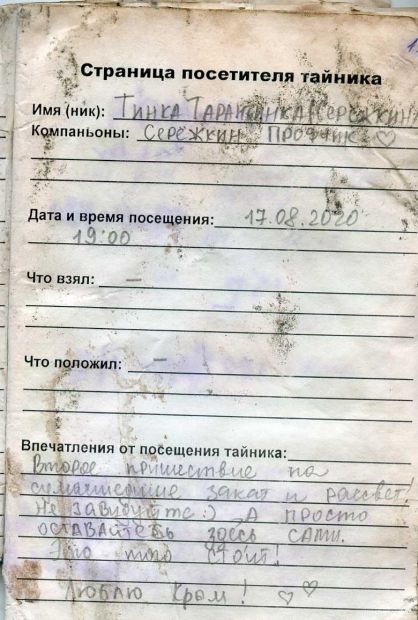 Страница посетителя тайника
Имя (ник): ТИНКА ТАРАКТИНКА СЕРЕЖКИНА
Компаньоны: СЕРЕЖКИН ПРОТЧИК ♡
Дата и время посещения: 17.08.2020
19:00
Что взял: –
Что положил: –
Впечатления от посещения тайника:
Второе пришествие на
сумасшедшие закат и рассвет!
Не завидуйте :) А ПРОСТО
ОСТАВАЙТЕСЬ ЗДЕСЬ САМИ.
Это того СТОИТ!
ЛЮБЛЮ Крым! ♡ ♡